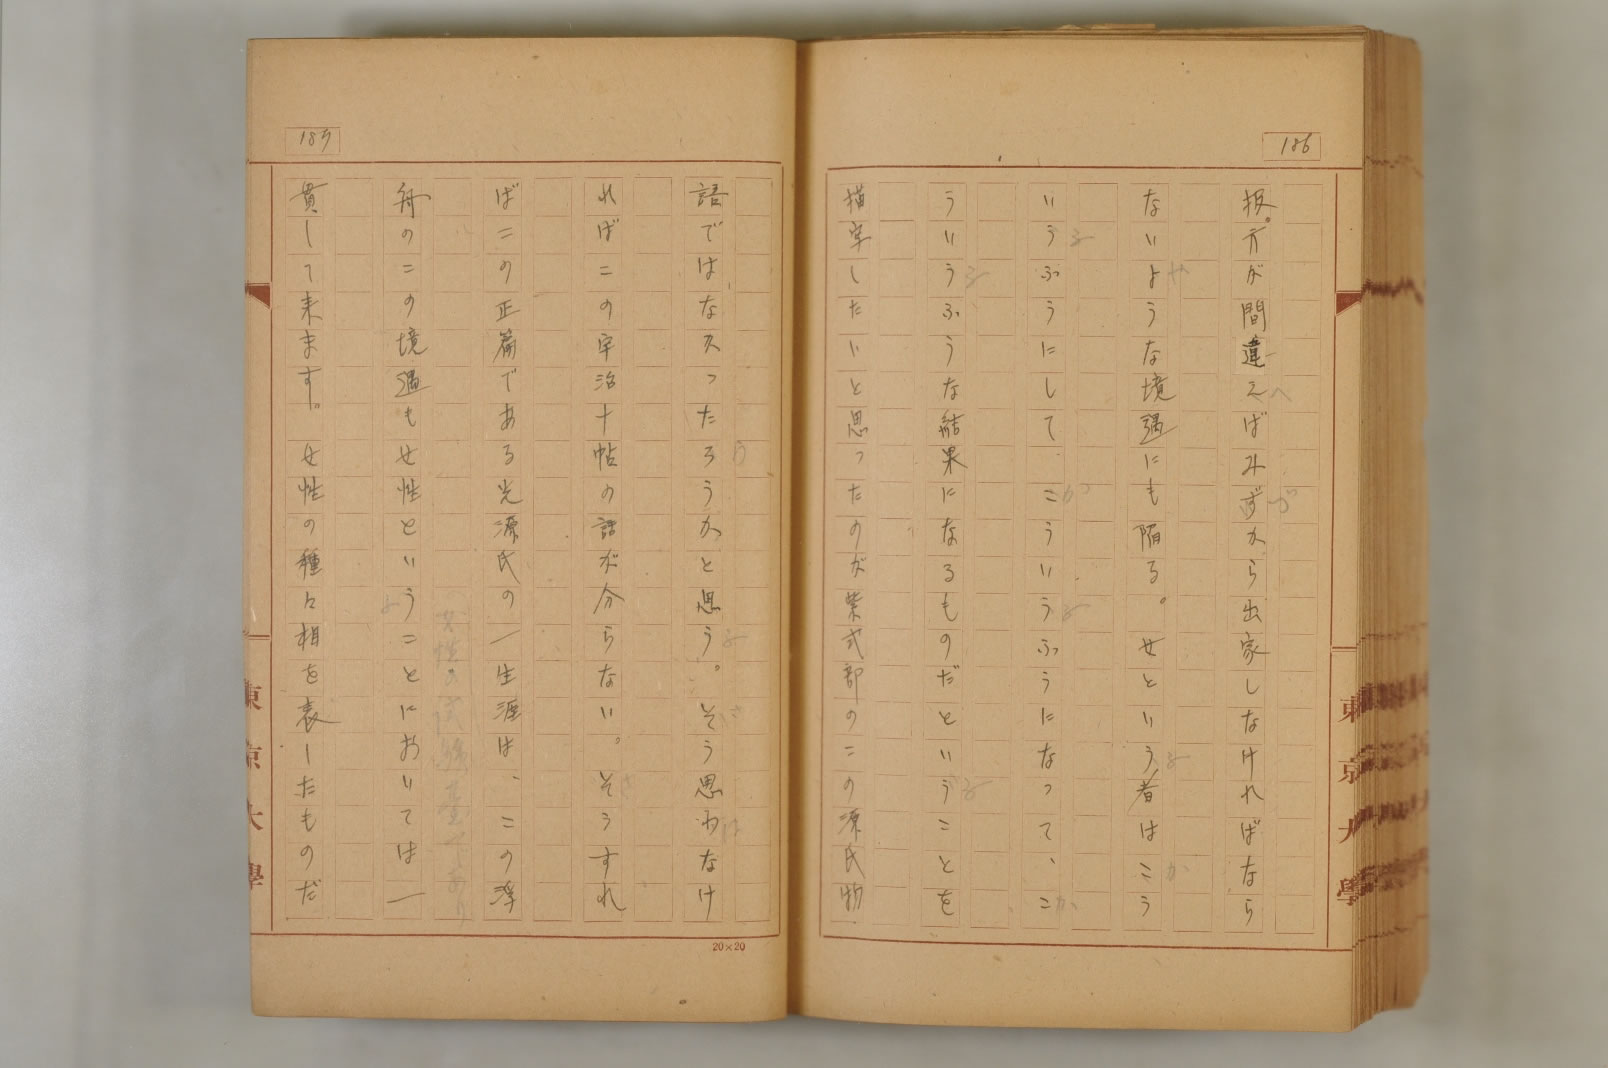 186
扱方が間違えばみずから出家しなければなら
ないような境遇にも陥る。女という者はこう
いうふうにして こういうふうになって、こ
ういうふうな結果になるものだということを
描写したいと思ったのが紫式部のこの源氏物
187
語ではなかったろうかと思う。そう思わなけ
ればこの宇治十帖の話が分らない。そうすれ
ばこの正篇である光源氏の一生涯は、この浮
舟のこの境遇も女性ということにおいては一
貫して来ます。女性の種々相を表したものだ
20×20
東京大學
東京大學